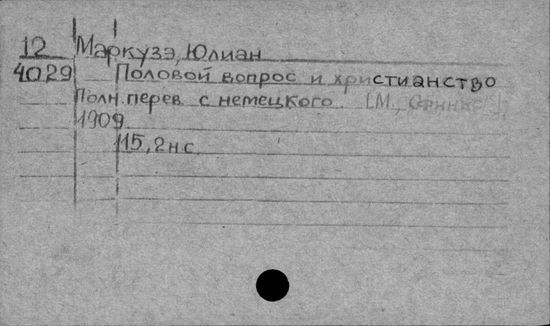 12 Маркузэ, Юлиан
4029 Половой вопрос и христианство
Полн. перев. с немецкого. [М., Сфинкс],
1909.
115, 2н с.